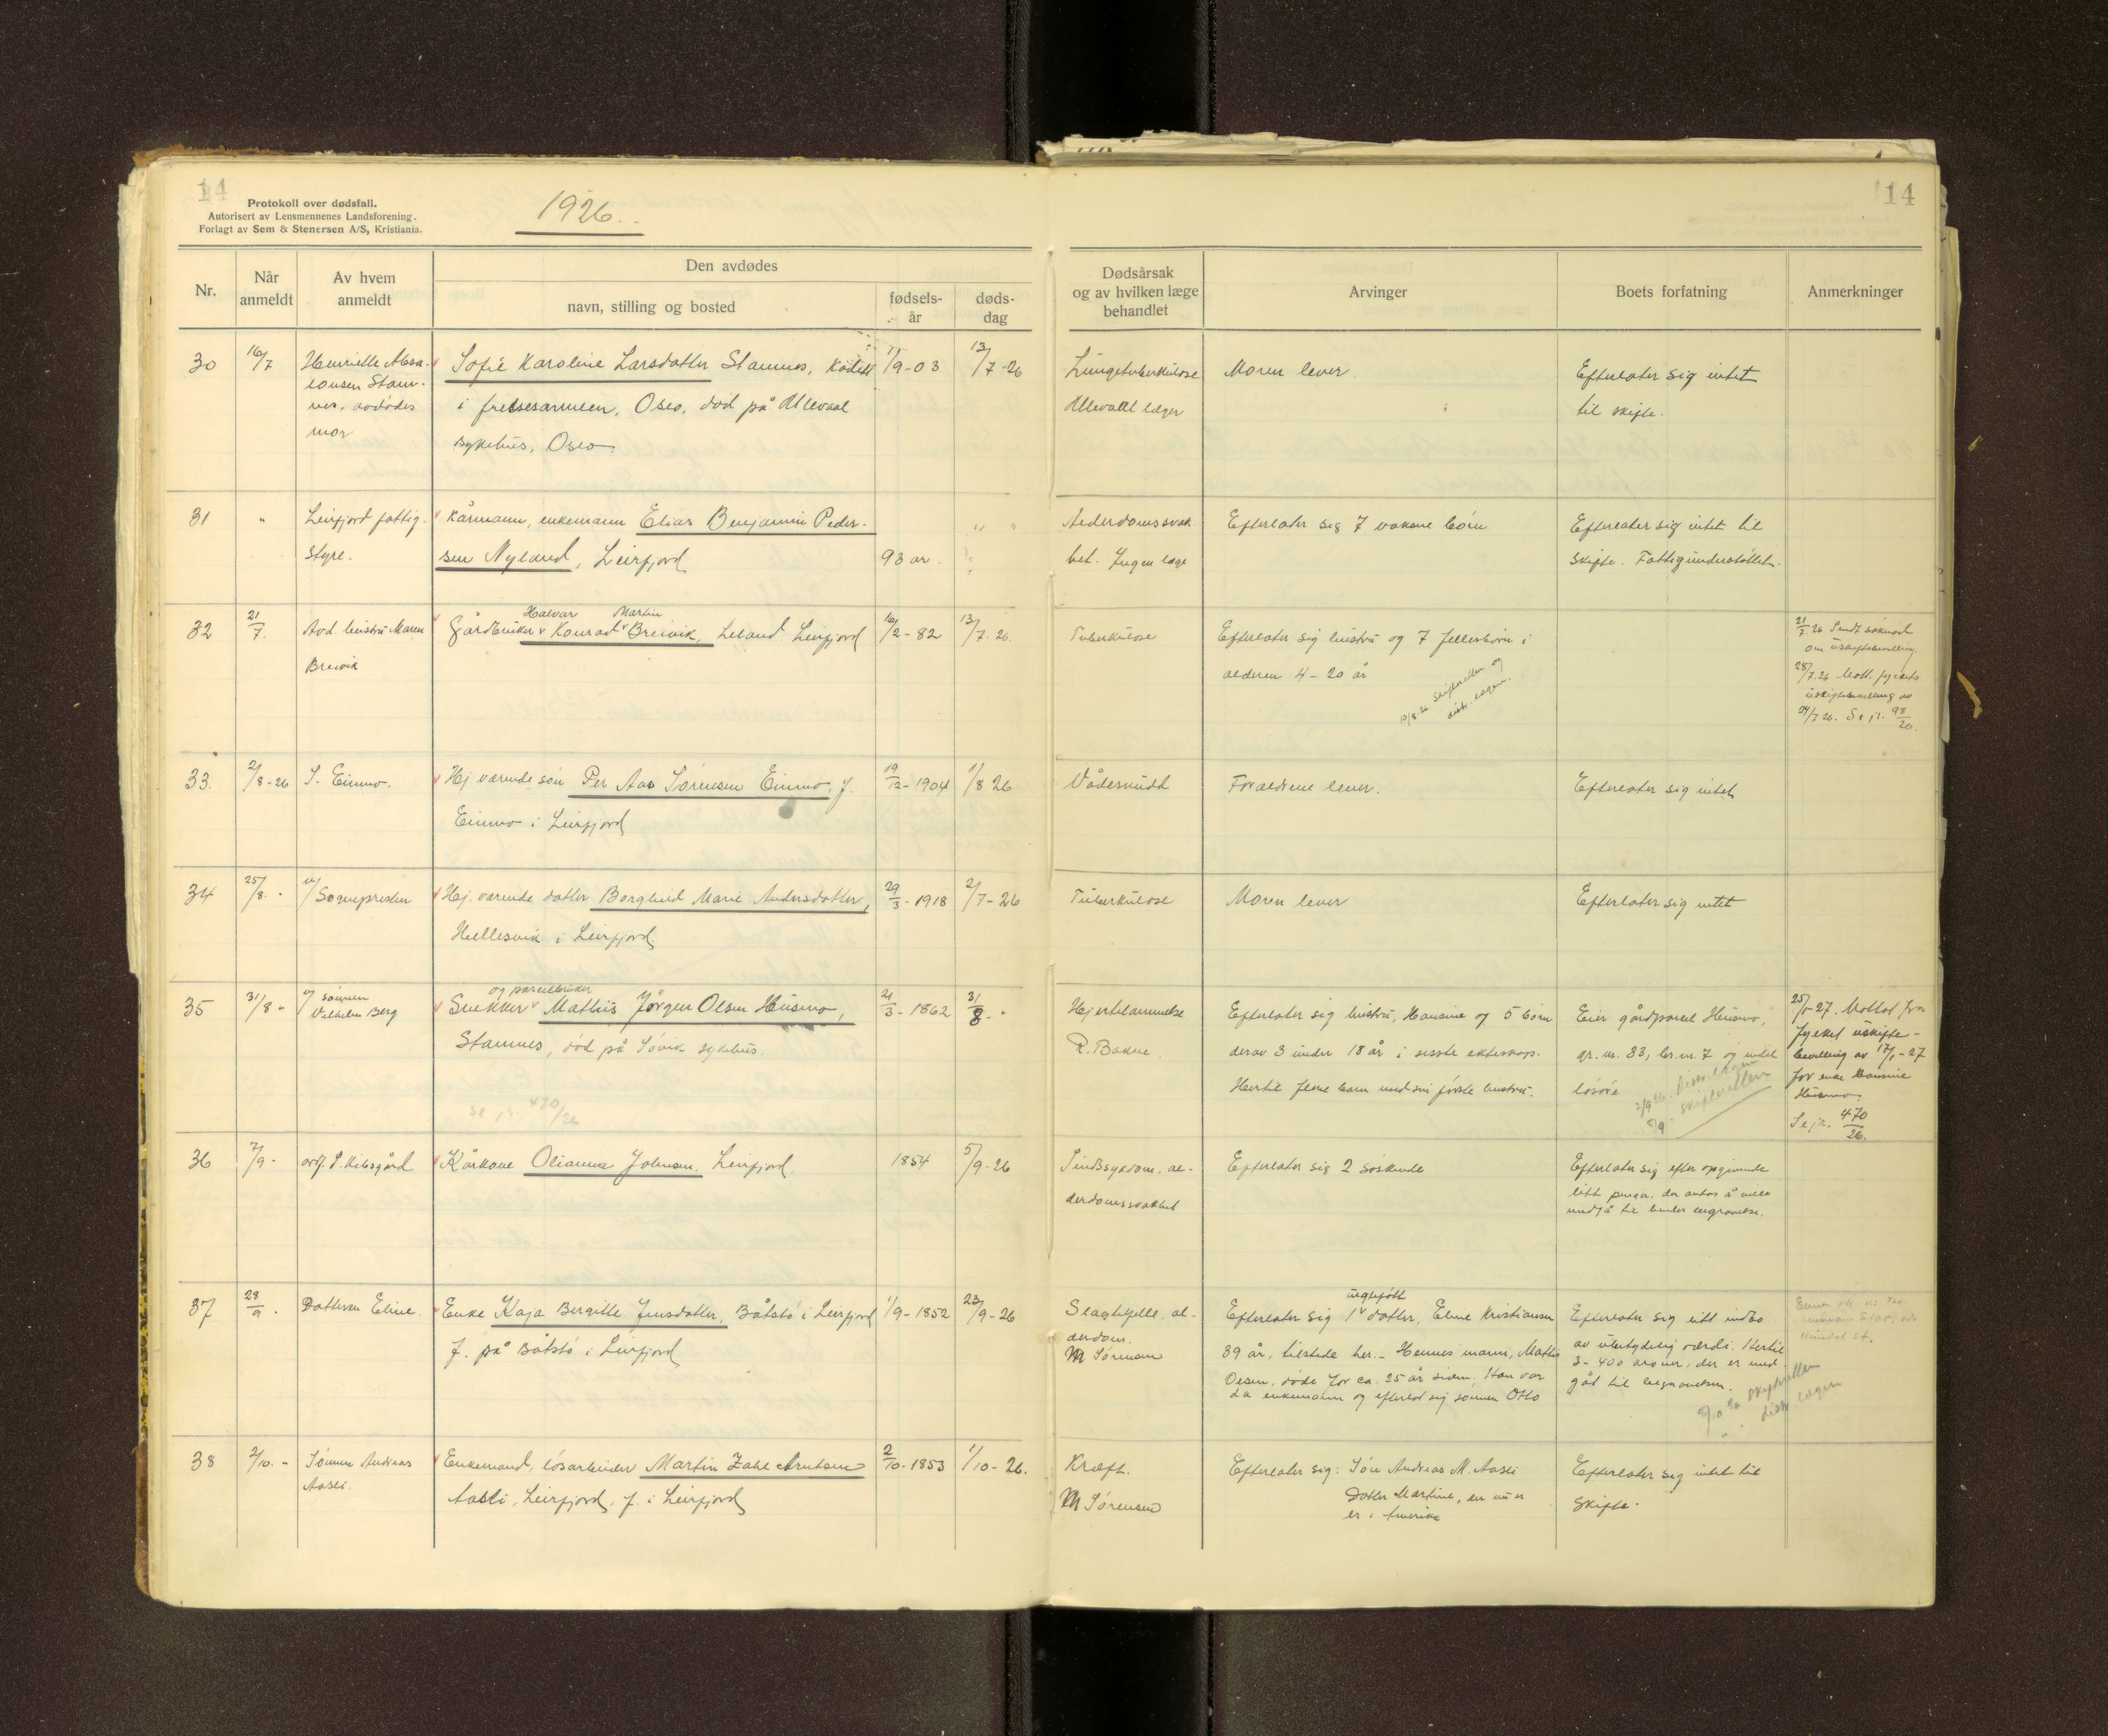 14
Protokoll over dødsfall.
Autorisert av Lensmennenes Landsforening.
Forlagt av Sem & Stenersen A/S, Kristiania.
1926.
14
Nr.
Når anmeldt
Av hvem anmeldt
Den avdødes
navn, stilling og bosted
fødsels-år
døds-dag
Dødsårsak og av hvilken læge behandlet
Arvinger
Boets forfatning
Anmerkninger
30 16/7 Henriette Absa-
lonsen Stam-
nes, avdødes
mor
Sofie Karoline Larsdatter Stamnes, Kadett
i frelsesarmeen, Oslo, død på Ullevaal
sykehus, Oslo
1/9-03 13/7-26
Lungetuberkulose
Ullevaal læger
Moren lever.
Efterlater sig intet
til skifte.
31 " Leirfjord fattig-
styre.
Kårmann, enkemann Elias Benjamin Peder-
sen Nyland, Leirfjord
93 år. " "
Alderdomssvak-
het. Ingen læge
Efterlater sig 7 voksne børn
Efterlater sig intet til
skifte. Fattigunderstøttet.
32 21/7. Avd. hustru Maren
Breivik
Halvar Martin
Gårdbruker Konrad Breivik, Leland, Leirfjord
16/2-82 13/7-26.
Tuberkulose
Efterlater sig hustru og 7 fellesbørn i
alderen 4-20 år
10/8-26 skifteretten og
distr. lægen.
21/7.26 Sendt søknad
om uskiftebevilling
28/7.26 Mott. fylkets
uskiftebevilling av
24/7 26. Se jr. 98/20.
33. 2/8-26 S. Einmo.
Hj. værende søn Per Aas Sørensen Einmo, f.
Einmo i Leirfjord
19/12-1904 1/8 26
Vådeskudt
Forældrene lever.
Efterlater sig intet
34 25/8. " v/ Sognepresten
Hj. værende datter Borghild Marie Andersdatter,
Hellesvik i Leirfjord
29/3-1918 2/7-26
Tuberkulose
Moren lever
Efterlater sig intet
35 31/8 " v/ sønnen
Vilhelm Berg
og parselbruker
Snekker Mathis Jørgen Olsen Husmo,
Stamnes, død på Søvik sykehus.
se jr. 470/26
21/3-1862 31/8- "
Hjertelammelse
R. Bakne.
Efterlater sig hustru, Hansine og 5 børn
derav 3 under 18 år i siste ekteskap.
Hertil flere barn med sin første hustru.
Eier gårdparsel Husmo,
gr. nr. 33, br. nr. 7 og intet
løsøre
2/9 26. distr. lægen
skifteretten
25/1-27. Mottat fra
fylket uskifte-
bevilling av 17/1-27
for enke Hansine
Husmo.
Se jr. 470/26.
36 7/9- ordf. P. Kibsgård
Kårkone Olianna Johnsen, Leirfjord.
1854 5/9-26
Sindssygdom, al-
derdomssvakhet
Efterlater sig 2 søskende
Efterlater sig efter opgivende
litt penger, der antas å ville
medgå til hendes begravelse.
37 28/9 . Datteren Eline.
Enke Kaja Bergitte Jensdatter, Båtstø i Leirfjord
f. på Båtstø i Leirfjord
1/9-1852 23/9-26
Slagtilfelle, al-
derdom.
M Sørensen
uegtefødt
Efterlater sig 1 datter, Eline Kristiansen
39 år, tilstede her. - Hennes mann, Mathis
Olsen, døde for ca. 25 år siden. Han var
da enkemann og efterlot sig sønnen Otto
Efterlater sig litt indbo
av ubetydelig værdi. Hertil
3-400 kroner, der er med-
gåd til begravelsen.
skifteretten
distr lægen
38 2/10. - Sønnen Andreas
Aasli.
Enkemand, løsarbeider Martin Zahl Arntsen
Aasli, Leirfjord, f. i Leirfjord
2/10-1853 1/10-26.
Kræft.
M Sørensen
Efterlater sig: Søn Andreas M. Aasli
Datter Martine, en nu er
er i Amerika
Efterlater sig intet til
skifte.